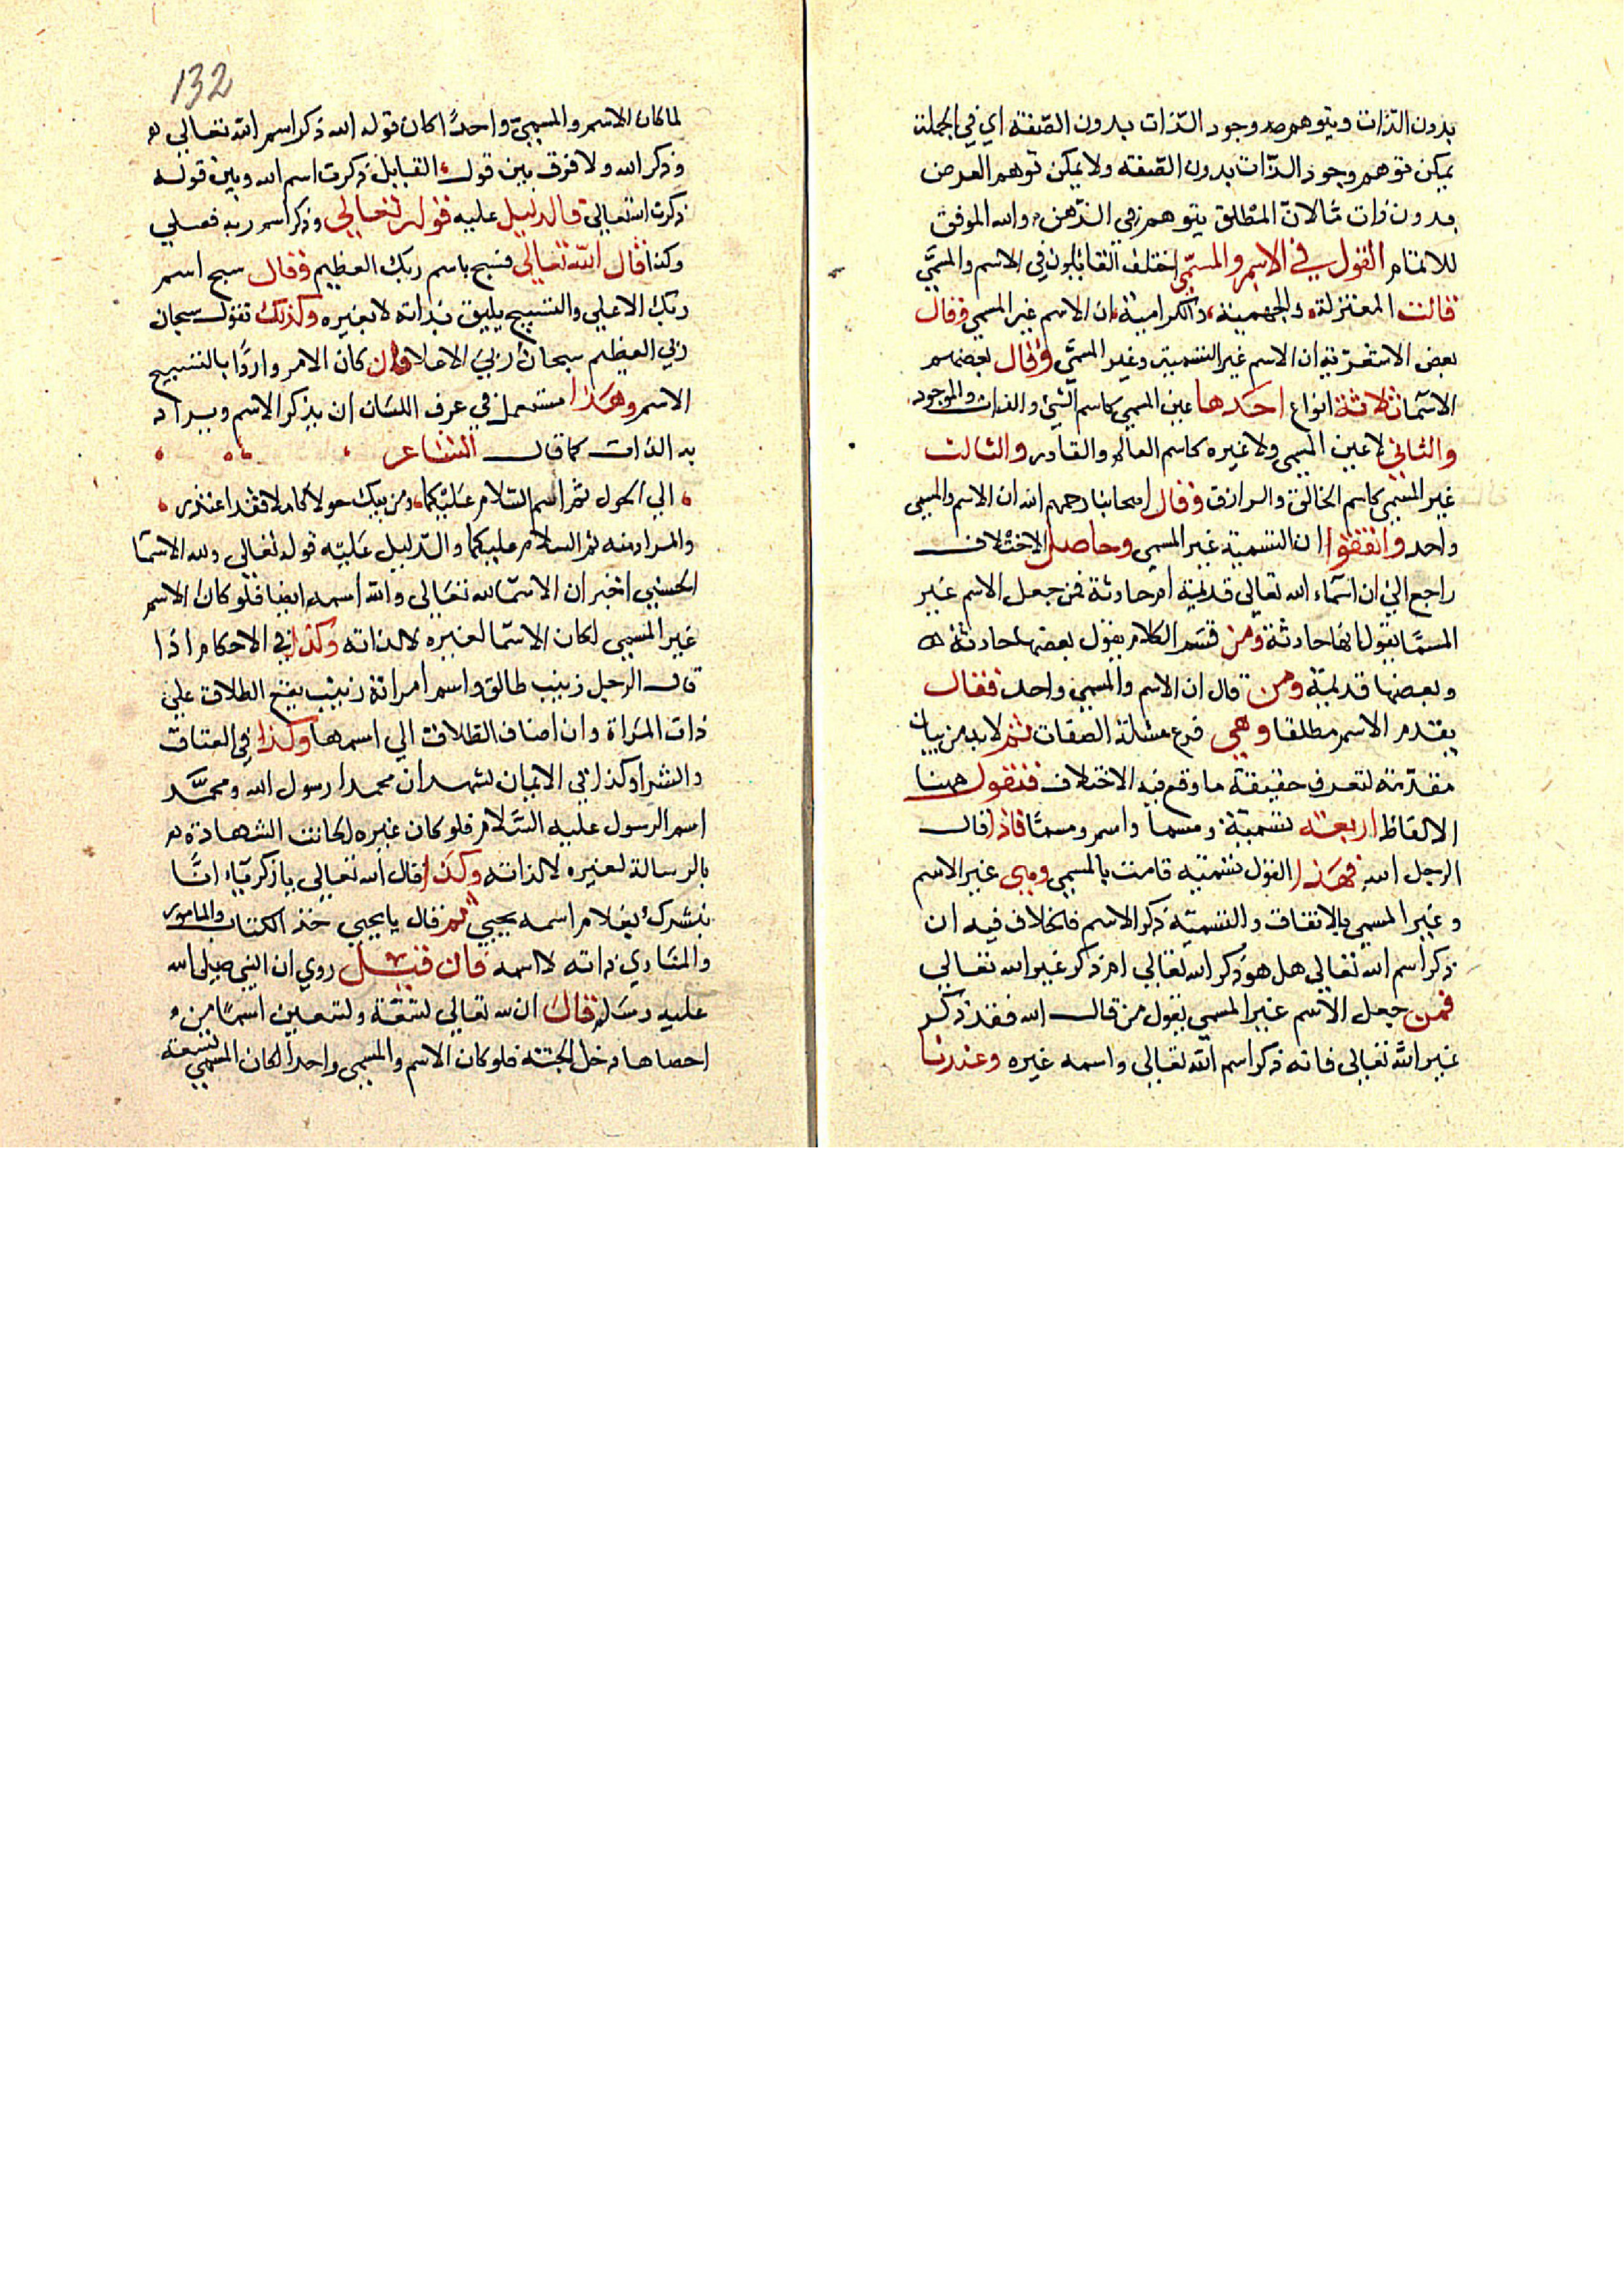 بدون الذات ويتوهم وجود الذات بدون الصفة اي في الجملة
يمكن توهم وجود الذات بدون الصفة ولا يمكن توهم العرض
بدون ذات ما لان المطلق يتوهم في الذهن والله الموفق
للاتمام القول في الاسم والمسمي اختلف القائلون في الاسم والمسمي
قالت المعتزلة والجهمية والكرامية ان الاسم غير المسمي وقال
بعض الاشعرية ان الاسم غير التسمية وغير المسمي وقال بعضهم
الاسما ثلاثة انواع احدها عين المسمي كاسم الشي والذات والموجود
والثاني لا عين المسمي ولا غيره كاسم العالم والقادر والثالث
غير المسمي كاسم الخالق والرازق وقال اصحابنا رحمهم الله ان الاسم والمسمي
واحد واتفقوا ان التسمية غير المسمي وحاصل الاختلاف
راجع الي ان اسماء الله تعالي قديمة ام حادثة فمن جعل الاسم غير
المسمّا يقول انها حادثة ومن قسم الكلام يقول بعضها حادثة
وبعضها قديمة ومن قال ان الاسم والمسمي واحد فقال
بقدم الاسم مطلقا وهي فرع مسئلة الصفات ثم لابد من بيان
مقدمة لتعرف حقيقة ما وقع فيه الاختلاف فنقول ههنا
الالفاظ اربعة تسمية ومسما واسم ومسمّا فاذا قال
الرجل الله فهذا القول تسمية قامت بالمسمي وهي غير الاسم
وغير المسمي بالاتفاق والتسمية ذكر الاسم فالخلاف فيه ان
ذكر اسم الله تعالي هل هو ذكر الله تعالي ام ذكر غير الله تعالي
فمن جعل الاسم غير المسمي يقول من قال الله فقد ذكر
غير الله تعالي فانه ذكر اسم الله تعالي واسمه غيره وعندنا
132
لما كان الاسم والمسمي واحدًا كان قوله الله ذكر اسم الله تعالي
وذكر الله ولا فرق بين قول القايل ذكرت اسم الله وبين قوله
ذكرت الله تعالي والدليل عليه قوله تعالي وذكر اسم ربه فصلي
وكذا قال الله تعالي فسبح باسم ربك العظيم وقال سبح اسم
ربك الاعلي والتسبيح يليق بذاته لا بغيره وكذلك تقول سبحان
ربي العظيم سبحان ربي الاعلا وان كان الامر واردًا بالتسبيح
الاسم وهذا مستعمل في عرف اللسان ان يذكر الاسم ويراد
به الذات كما قال الشاعر
الي الحول ثم اسم السلام عليكما ومن يبك حولا كاملا فقد اعتذر
والمراد منه ثم السلام عليكما والدليل عليه قوله تعالي ولله الاسما
الحسني اخبر ان الاسما لله تعالي والله اسمه ايضا فلو كان الاسم
غير المسمي لكان الاسما لغيره لا لذاته وكذا في الاحكام اذا
قال الرجل زينب طالق واسم امراته زينب يقع الطلاق علي
ذات المراة وان اضاف الطلاق الي اسمها وكذا في العتاق
والشرا وكذا في الايمان نشهد ان محمدا رسول الله ومحمد
اسم الرسول عليه السلام فلو كان غيره لكانت الشهادة
بالرسالة لغيره لا لذاته وكذا قال الله تعالي يا زكريا انا
نبشرك بغلام اسمه يحيي ثم قال يا يحيي خذ الكتاب والمامور
والمنادي ذاته لا اسمه فان قيل روي ان النبي صلي الله
عليه وسلم قال ان لله تعالي تسعة وتسعين اسمًا من
احصاها دخل الجنة فلو كان الاسم والمسمي واحدًا لكان المسمي تسعة